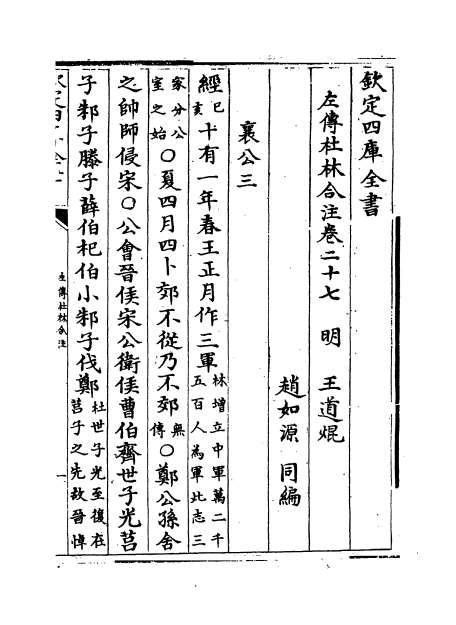 欽定四庫全書
左傳杜林合注卷二十七 明 王道焜
趙如源 同編
襄公三
經己亥十有一年春王正月作三軍林增立中軍萬二千五百人為軍此志三
家分公室之始〇夏四月四卜郊不從乃不郊無傳〇鄭公孫舍
之帥師侵宋〇公會晉侯宋公衛侯曹伯齊世子光莒
子邾子滕子薛伯杞伯小邾子伐鄭杜世子光至復在莒子之先故晉悼
左傳杜林合注
一